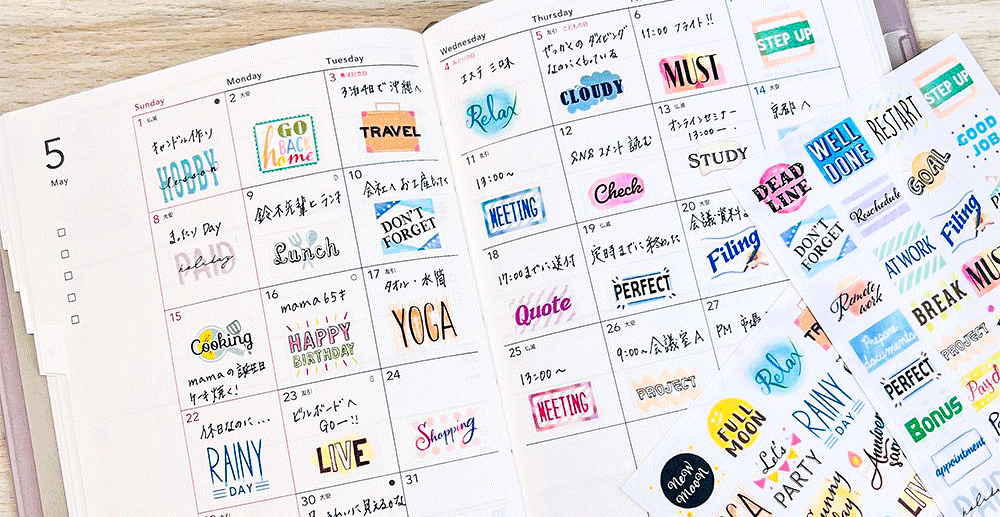 5
May
Sunday
Monday
Tuesday
Wednesday
Thursday
1 仏滅
キャンドル作り
HOBBY
lesson
2 大安
GO
BACK
home
3 憲法記念日
3泊4日で沖縄へ
TRAVEL
4 みどりの日
エステ三昧
Relax
5 友引 こどもの日
せっかくのダイビング
なのにくもっている
CLOUDY
6
11:00 フライト!!
MUST
STEP UP
8 大安
まったりDay
PAID
holiday
9
鈴木先輩とランチ
Lunch
10
会社へお土産もってく
DON'T
FORGET
11
13:00〜
MEETING
12
SNSコメント読む
Check
13 仏滅
オンラインセミナー
13:00〜
STUDY
14 大安
京都へ
15
Cooking
mamaの誕生日
ケーキ焼く!
16
mama65才
HAPPY
BIRTHDAY
17 友引
タオル・水筒
YOGA
18
17:00までに送付
Quote
19 仏滅
定時までに終わった
PERFECT
20 大安
会議資料
Filing
22
休日なのに...
RAINY
DAY
23 友引
ビルボードへ
GO−!!
LIVE
24
Shopping
25 仏滅
13:00〜
MEETING
26 大安
9:00〜会議室A
PROJECT
27
PM
30 大安
31
STEP UP
RESTART
WELL
DONE
GOOD
JOB
DEAD
LINE
GOAL
Reschedule
DON'T
FORGET
Filing
AT WORK
Remote
work
BREAK
MUS
Prepare
documents
PROJECT
PERFECT
Payd
Bonus
appointment
PAID
LIV
TR
Relax
RAINY
DAY
FULL
MOON
Let's
PARTY
NEW
MOON